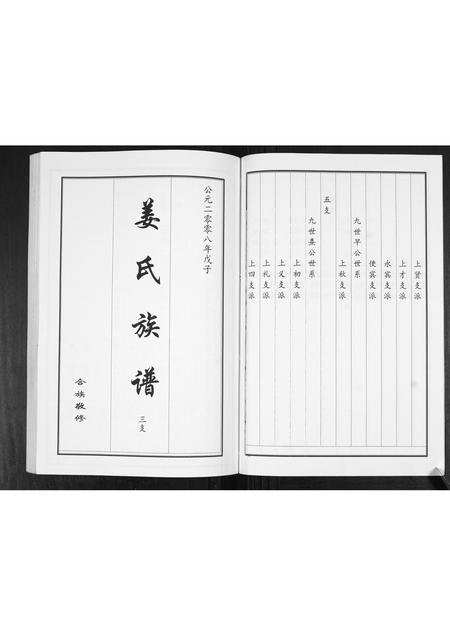 上贤支派
上才支派
永宾支派
使宾支派
九世早公世系
上秋支派
五支
九世羔公世系
上初支派
上义支派
上礼支派
上四支派
公元二零零八年戊子
姜氏族谱
三支
合族敬修